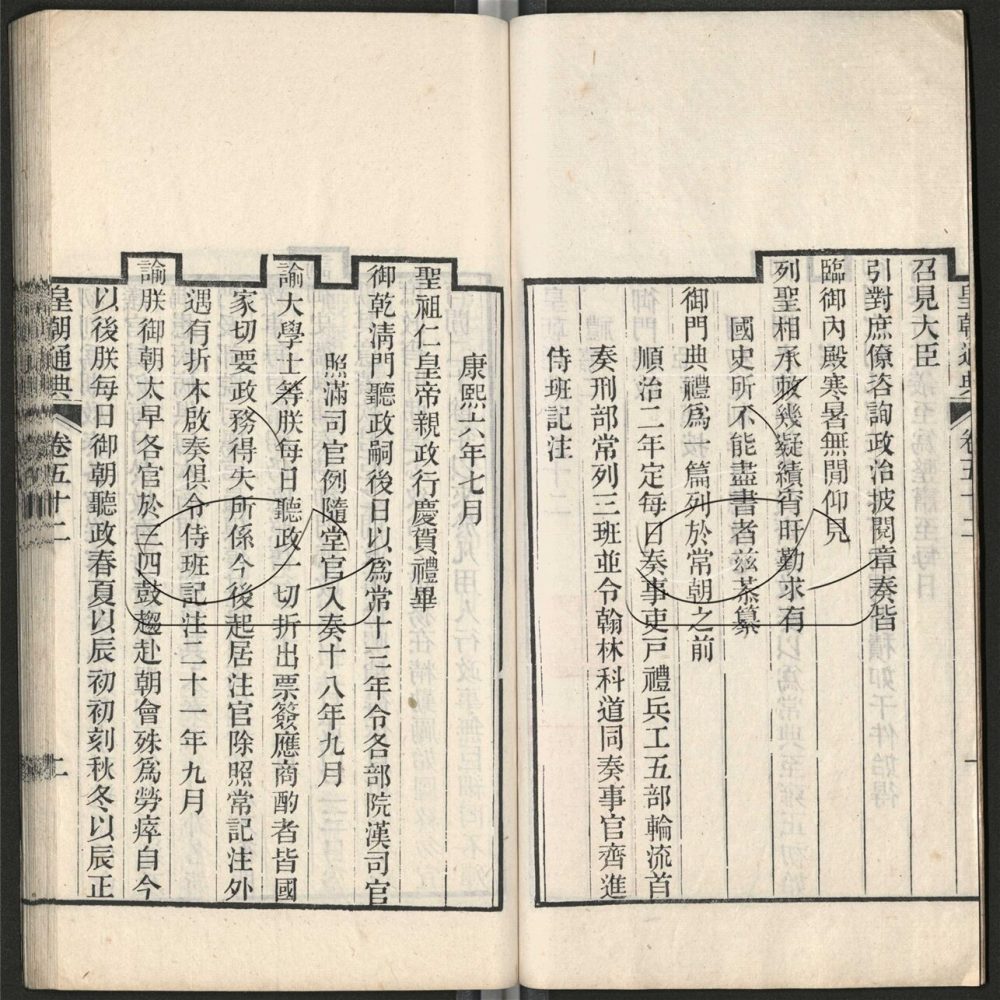 皇朝通典 卷五十二 一
召見大臣
引對庶僚咨詢政治披閱章奏皆
臨御內殿寒暑無閒仰見
列聖相承敕幾疑績宵旰勤求有
國史所不能盡書者茲恭纂
御門典禮爲一篇列於常朝之前
順治二年定每日奏事吏戸禮兵工五部輪流首
奏刑部常列三班並令翰林科道同奏事官齊進
侍班記注
康熙六年七月
聖祖仁皇帝親政行慶賀禮畢
御乾清門聽政嗣後日以爲常十三年令各部院漢司官
照滿司官例隨堂官入奏十八年九月
諭大學士等朕每日聽政一切折出票簽應商酌者皆國
家切要政務得失所係今後起居注官除照常記注外
遇有折本啟奏俱令侍班記注二十一年九月
諭朕御朝太早各官於三四鼓趨赴朝會殊爲勞瘁自今
以後朕每日御朝聽政春夏以辰初初刻秋冬以辰正
皇朝通典 卷五十二 二